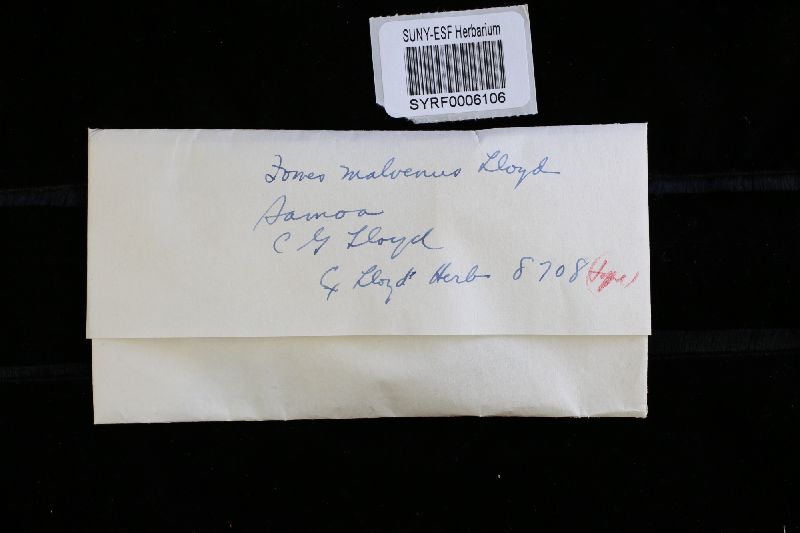 SUNY-ESF Herbarium
SYRF0006106
Fomes malvenus Lloyd
Samoa
C G Lloyd
Ex Lloyd Herb 8708 (Type)